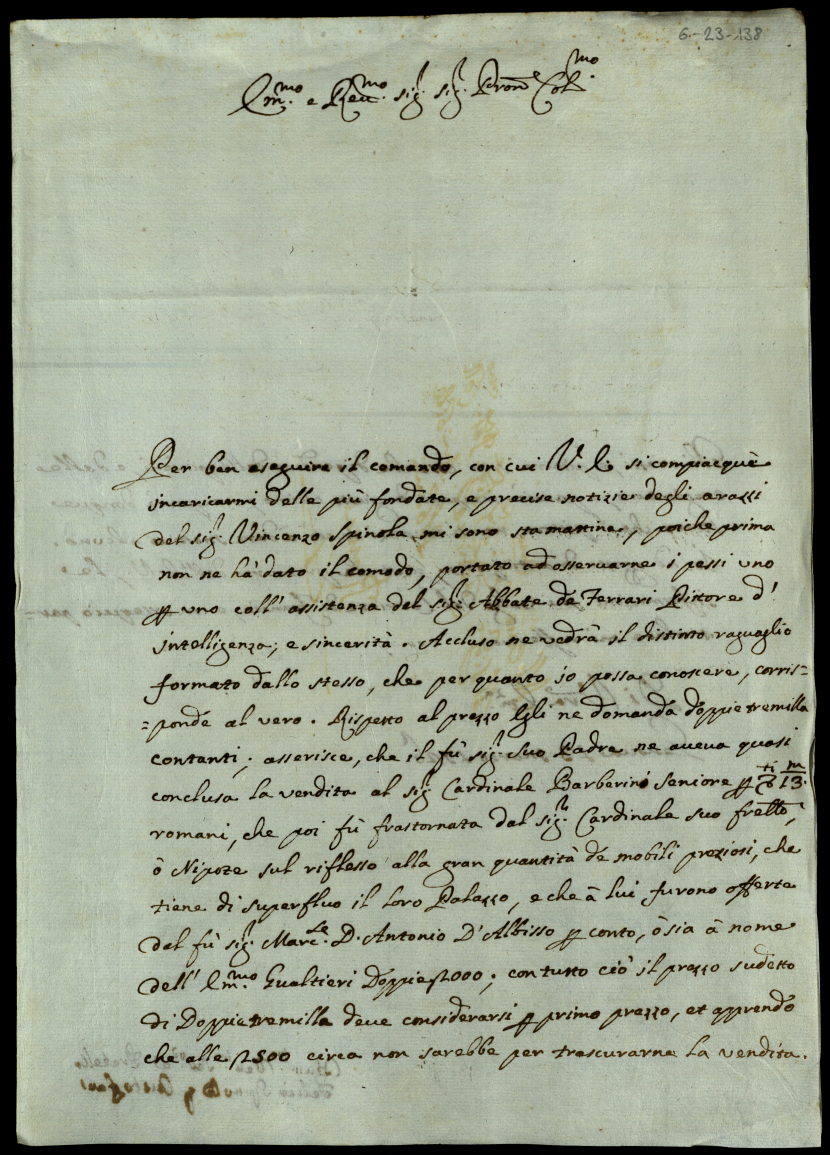 6.-23-138
Ill.mo e Rev.mo sig.r sig.r Pron.e Col.mo
Per ben eseguire il comando, con cui V. S. si compiacque
incaricarmi delle più fondate, e precise notizie degli arazzi
del sig.r Vincenzo Spinola mi sono stamattine, poiche prima
non ne hà dato il comodo, portato ad osservarne i pezzi uno
p uno coll' assistenza del sig.r Abbate de Ferrari Pittore d'
intelligenza; e sincerità. Accluso ne vedrà il distinto raguaglio
formato dallo stesso, che per quanto io possa conoscere, corris=
=ponde al vero. Rispetto al prezzo Egli ne domanda doppie tremilla
contanti; asserisce, che il fù sig.r suo Padre ne aveva quasi
conclusa la vendita al sig.r Cardinale Barberini Seniore p 13
romani, che poi fù frastornata dal sig.r Cardinale suo fretto,
ò Nipote sul riflesso alla gran quantità de mobili preziosi, che
tiene di superfluo il loro Palazzo, e che à lui furono offerte
dal fù sig.r Marc.le D. Antonio D'Albisso p conto, ò sia à nome
dell' Ill.mo Gualtieri Doppie 2000; con tutto ciò il prezzo sudetto
di Doppie tremilla deve considerarsi p primo prezzo, et apprendo
che alle 2500 circa non sarebbe per trascurarne la vendita.